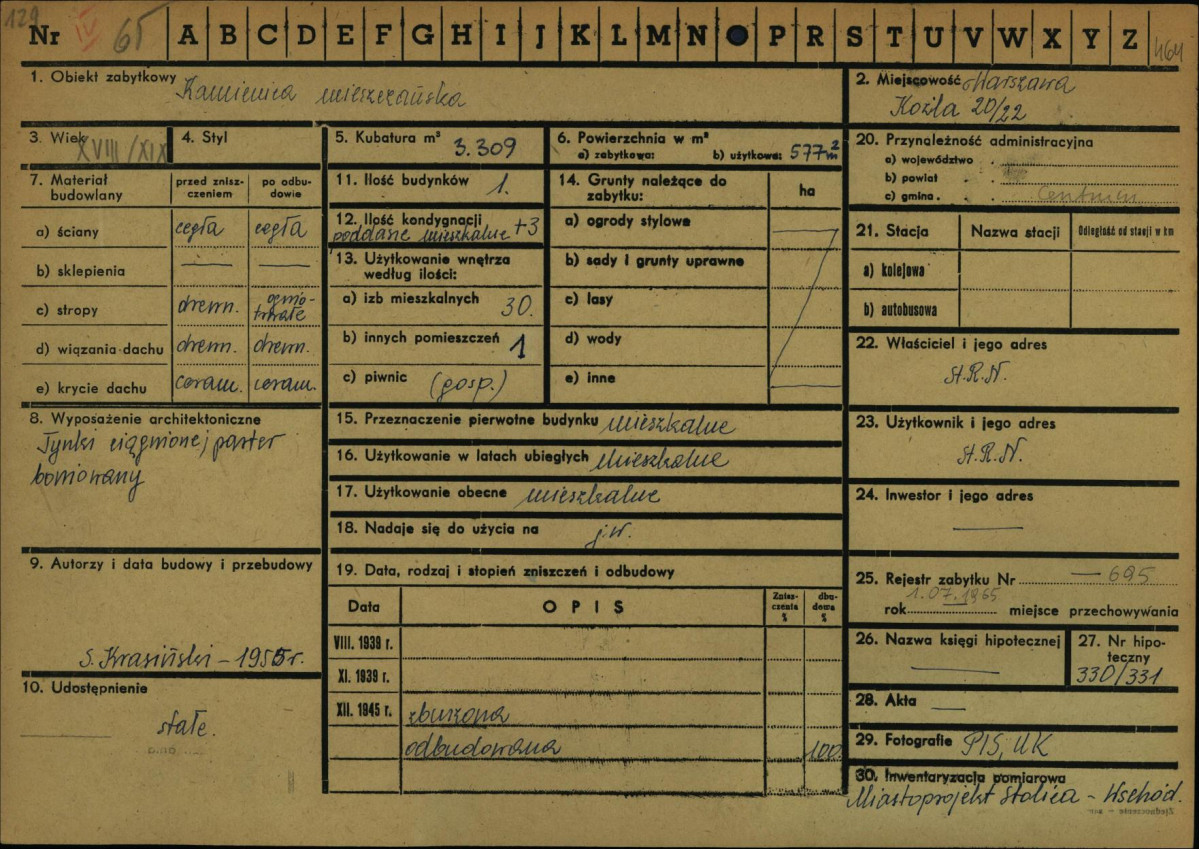 129
Nr IV 65 A B C D E F G H I J K L M N P R S T U V W X Y Z 464
1. Obiekt zabytkowy Kamienica mieszczańska
2. Miejscowość Warszawa
Koźla 20/22
3. Wiek XVIII/XIX
4. Styl
5. Kubatura m³ 3.309
6. Powierzchnia w m²
a) zabytkowa: b) użytkowa: 577 m²
7. Materiał budowlany
przed zniszczeniem
po odbudowie
a) ściany cegła cegła
b) sklepienia — —
c) stropy drewn. ogniotrwałe
d) wiązania dachu drewn. drewn.
e) krycie dachu ceram. ceram.
8. Wyposażenie architektoniczne
Tynki ciągnione, parter
boniowany
9. Autorzy i data budowy i przebudowy
S. Krasiński – 1955 r.
10. Udostępnienie
stałe.
11. Ilość budynków 1.
12. Ilość kondygnacji
poddasze mieszkalne +3
13. Użytkowanie wnętrza
według ilości:
a) izb mieszkalnych 30.
b) innych pomieszczeń 1
c) piwnic (gosp.)
14. Grunty należące do
zabytku:
ha
a) ogrody stylowe
b) sady i grunty uprawne
c) lasy
d) wody
e) inne
15. Przeznaczenie pierwotne budynku mieszkalne
16. Użytkowanie w latach ubiegłych mieszkalne
17. Użytkowanie obecne mieszkalne
18. Nadaje się do użycia na j.w.
19. Data, rodzaj i stopień zniszczeń i odbudowy
Data OPIS Zniszczenia % dbudowa %
VIII. 1939 r.
XI. 1939 r.
XII. 1945 r. zburzona
odbudowana 100
20. Przynależność administracyjna
a) województwo
b) powiat
c) gmina Centrum
21. Stacja Nazwa stacji Odległość od stacji w km
a) kolejowa
b) autobusowa
22. Właściciel i jego adres
St.R.N.
23. Użytkownik i jego adres
St.R.N.
24. Inwestor i jego adres
—
25. Rejestr zabytku Nr — 695
1.07.1965
rok miejsce przechowywania
26. Nazwa księgi hipotecznej
—
27. Nr hipoteczny
330/331
28. Akta —
29. Fotografie PIS, UK
30. Inwentaryzacja pomiarowa
Miastoprojekt Stolica – Wschód.